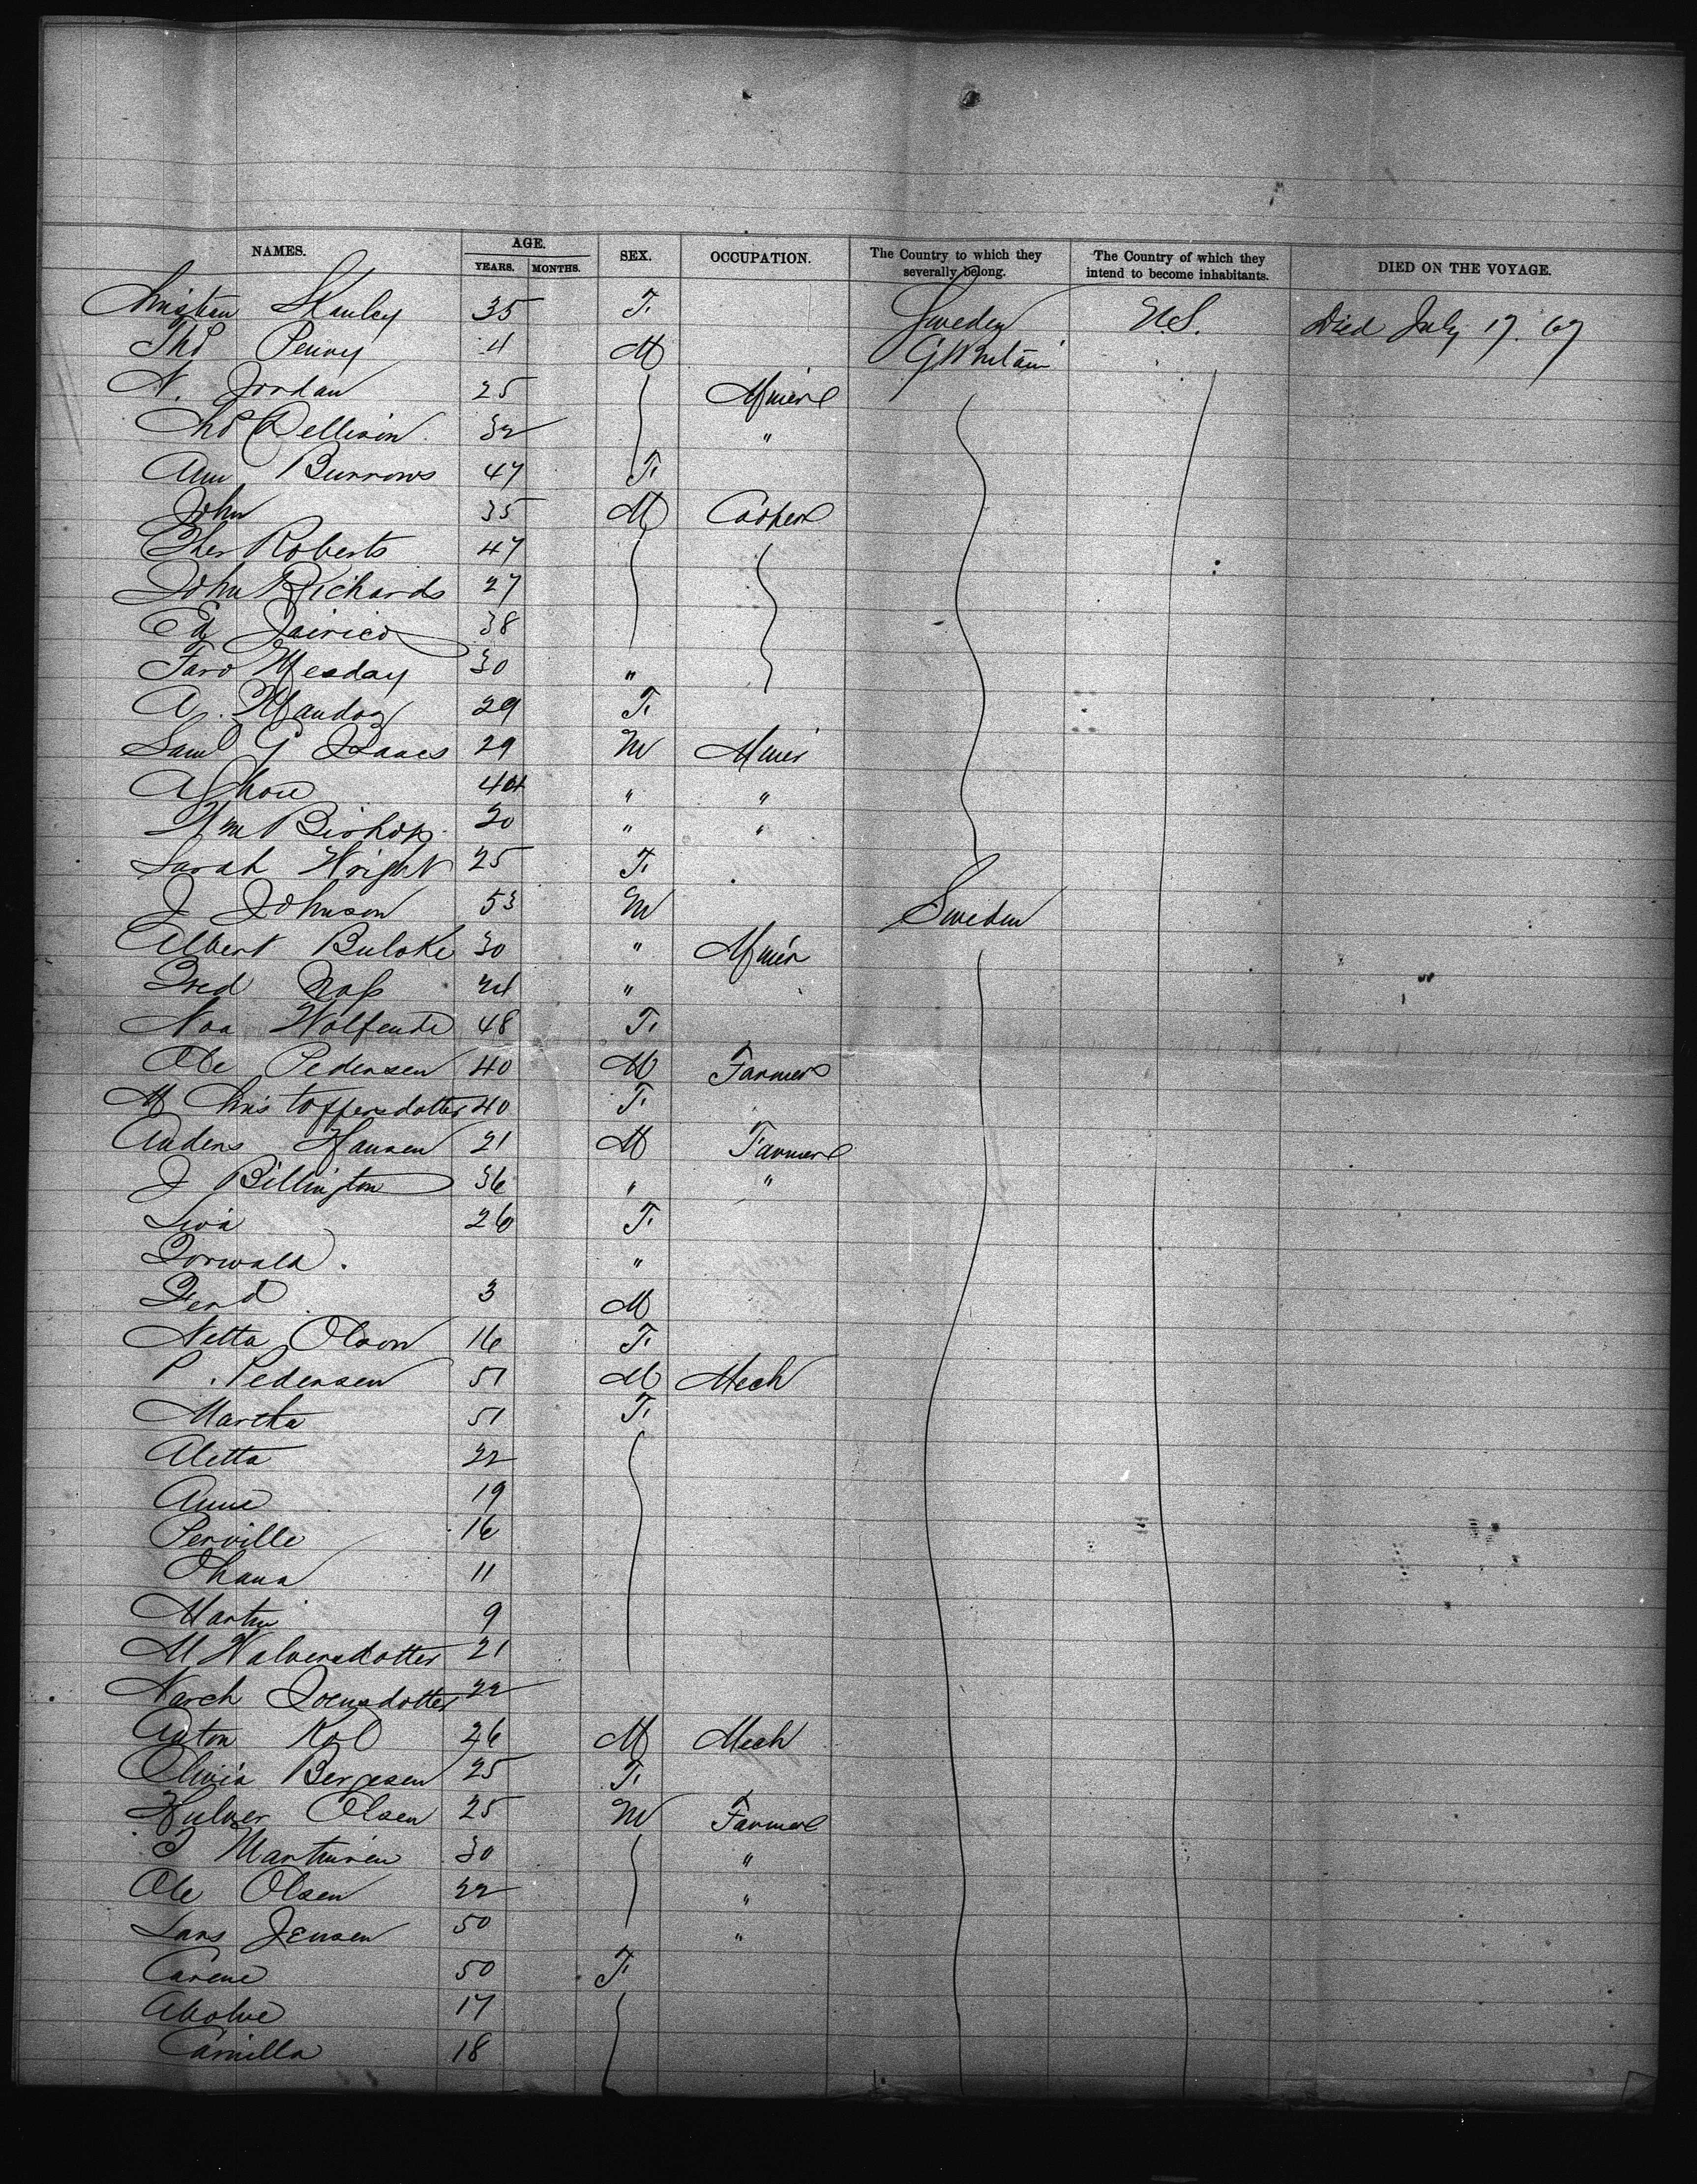 NAMES. AGE. YEARS. MONTHS. SEX. OCCUPATION. The Country to which they severally belong. The Country of which they intend to become inhabitants. DIED ON THE VOYAGE.
Christian Stanley 35 F. Sweden U.S. Died July 17. 67
Thos Penny 4 M Gt Britain
N. Jordan 25 Miner
Thos Pellison 32 "
Ann Burrows 47 F.
John 35 M Cooper
Thos Roberts 47
John Richards 27
Ed 38
30 "
A. 29 F.
Saml G Isaacs 29 M Miner
A 44 " "
Wm Bishop 20 " "
Sarah Wright 25 F.
J Johnson 53 M Sweden
Albert Buloke 30 " Miner
Fred 24 "
Noa Wolfende 48 F.
Ole Pedersen 40 M Farmer
M Christoffersdotter 40 F.
Anders Hansen 21 M Farmer
J Billington 36 " "
Livia 26 F.
Torwald. "
Ferd 3 M
Netta Olson 16 F.
P. Pedersen 51 M Mech
Martha 51 F.
Aletta 22
Anne 19
Perville 16
Ohana 11
Martin 9
M Halversdotter 21
22
Anton Kol 26 M Mech
Olivia Bergesen 25 F.
Hulver Olsen 25 M Farmer
T Martinsen 30 "
Ole Olsen 22 "
Lars Jensen 50 "
Carene 50 F.
17
Camilla 18